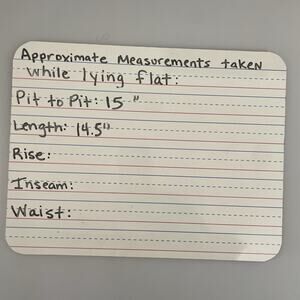 Approximate Measurements taken
while lying flat:
Pit to Pit: 15"
Length: 14.5"
Rise:
Inseam:
Waist: